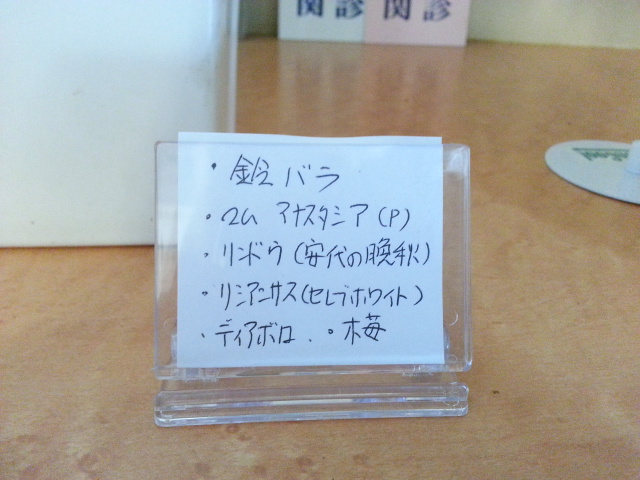 関診
関診
・鈴バラ
・マム アナスタシア(P)
・リンドウ(安代の晩秋)
・リシアンサス(セレブホワイト)
・ディアボロ ・木苺